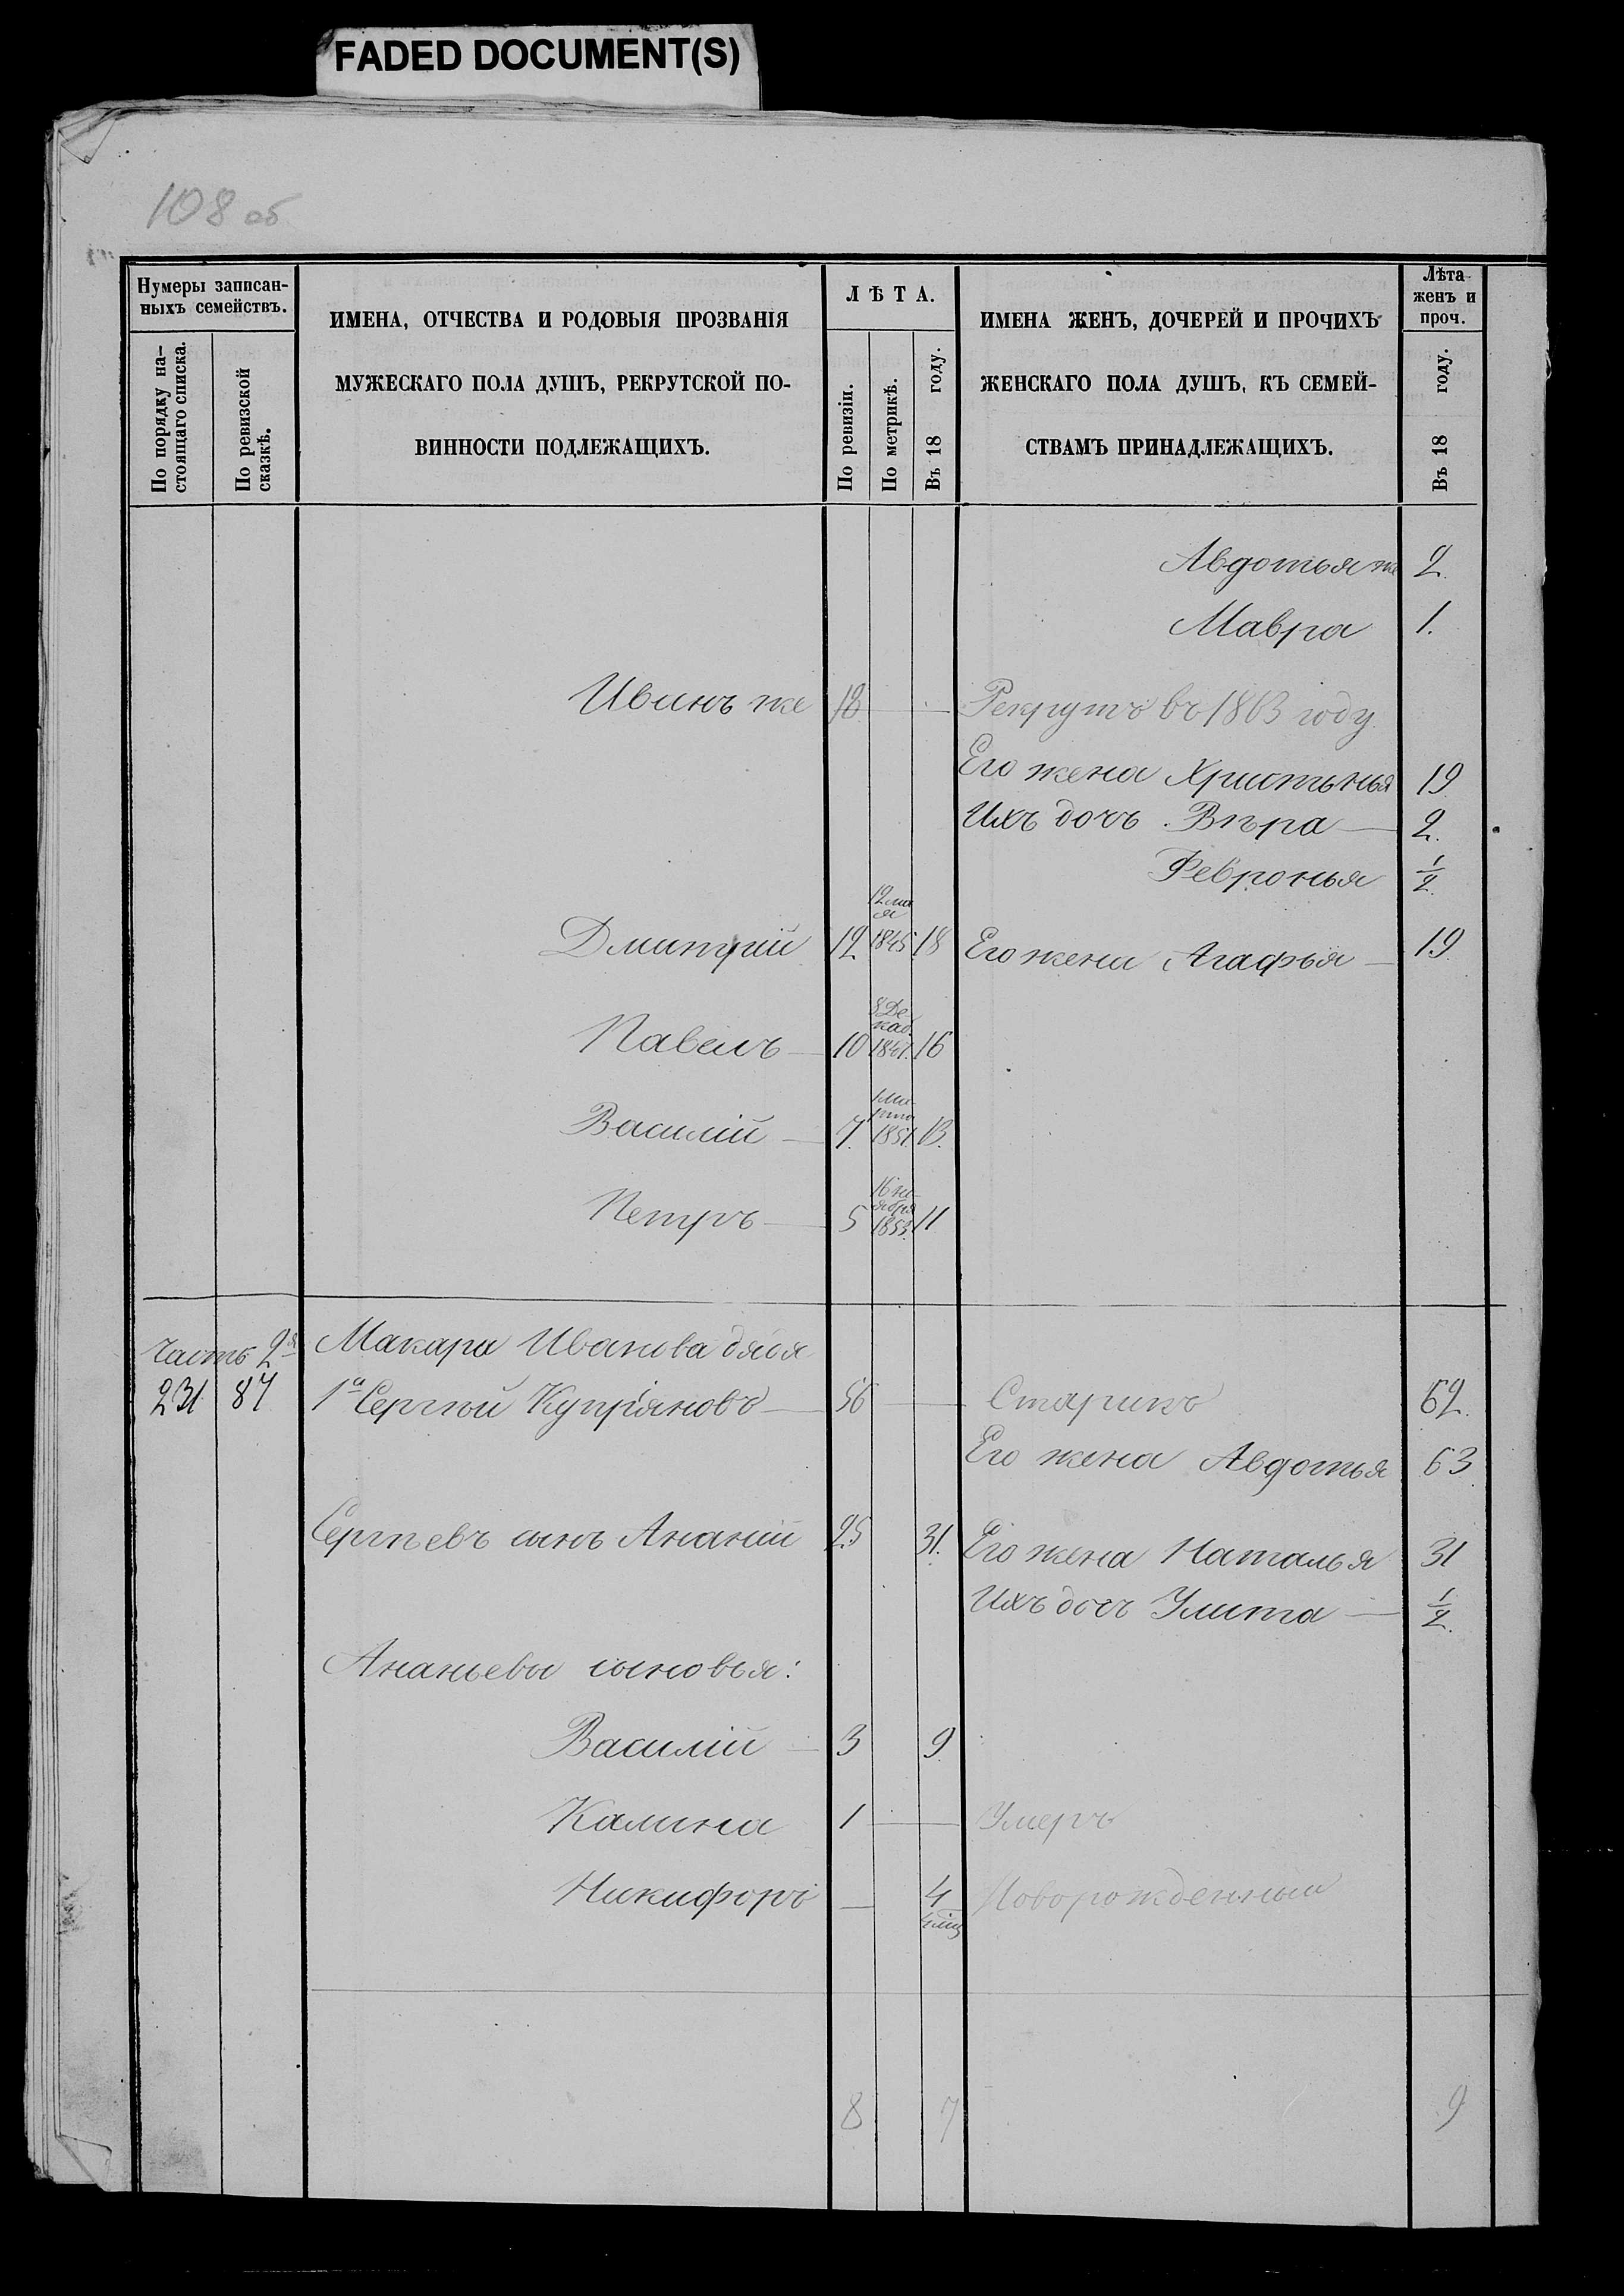 FADED DOCUMENT(S)
108 об
Нумеры записан-
ныхъ семействъ.
По порядку на-
стоящаго списка.
По ревизской
сказкѣ.
ИМЕНА, ОТЧЕСТВА И РОДОВЫЯ ПРОЗВАНІЯ
МУЖЕСКАГО ПОЛА ДУШЪ, РЕКРУТСКОЙ ПО-
ВИННОСТИ ПОДЛЕЖАЩИХЪ.
ЛѢТА.
По ревизіи.
По метрикѣ.
Въ 18 году.
ИМЕНА ЖЕНЪ, ДОЧЕРЕЙ И ПРОЧИХЪ
ЖЕНСКАГО ПОЛА ДУШЪ, КЪ СЕМЕЙ-
СТВАМЪ ПРИНАДЛЕЖАЩИХЪ.
Лѣта
женъ и
проч.
Въ 18 году.
Авдотья же 2.
Мавра 1.
Иванъ же 18 Рекрутъ въ 1863 году.
Его жена Христинья 19
Ихъ дочь Вѣра 2.
Февронья 1/2
12 ма
я
Дмитрій 12 1845 18 Его жена Агафья 19.
8 Де-
каб.
Павелъ 10 1847. 16
1 Ма-
рта
Василій 7. 1851. 13.
16 но-
ября
Петръ 5 1853 11
Часть 2я Макара Иванова дядя
231 87 1й Сергѣй Купріяновъ 56 Старикъ 62.
Его жена Авдотья 63
Сергѣевъ сынъ Ананій 25 31. Его жена Наталья 31
Ихъ дочь Улита 1/2.
Ананьевы сыновья:
Василій 3 9
Калина 1 Умеръ
Никифоръ 4 Новорожденный
мѣц
8 7 9